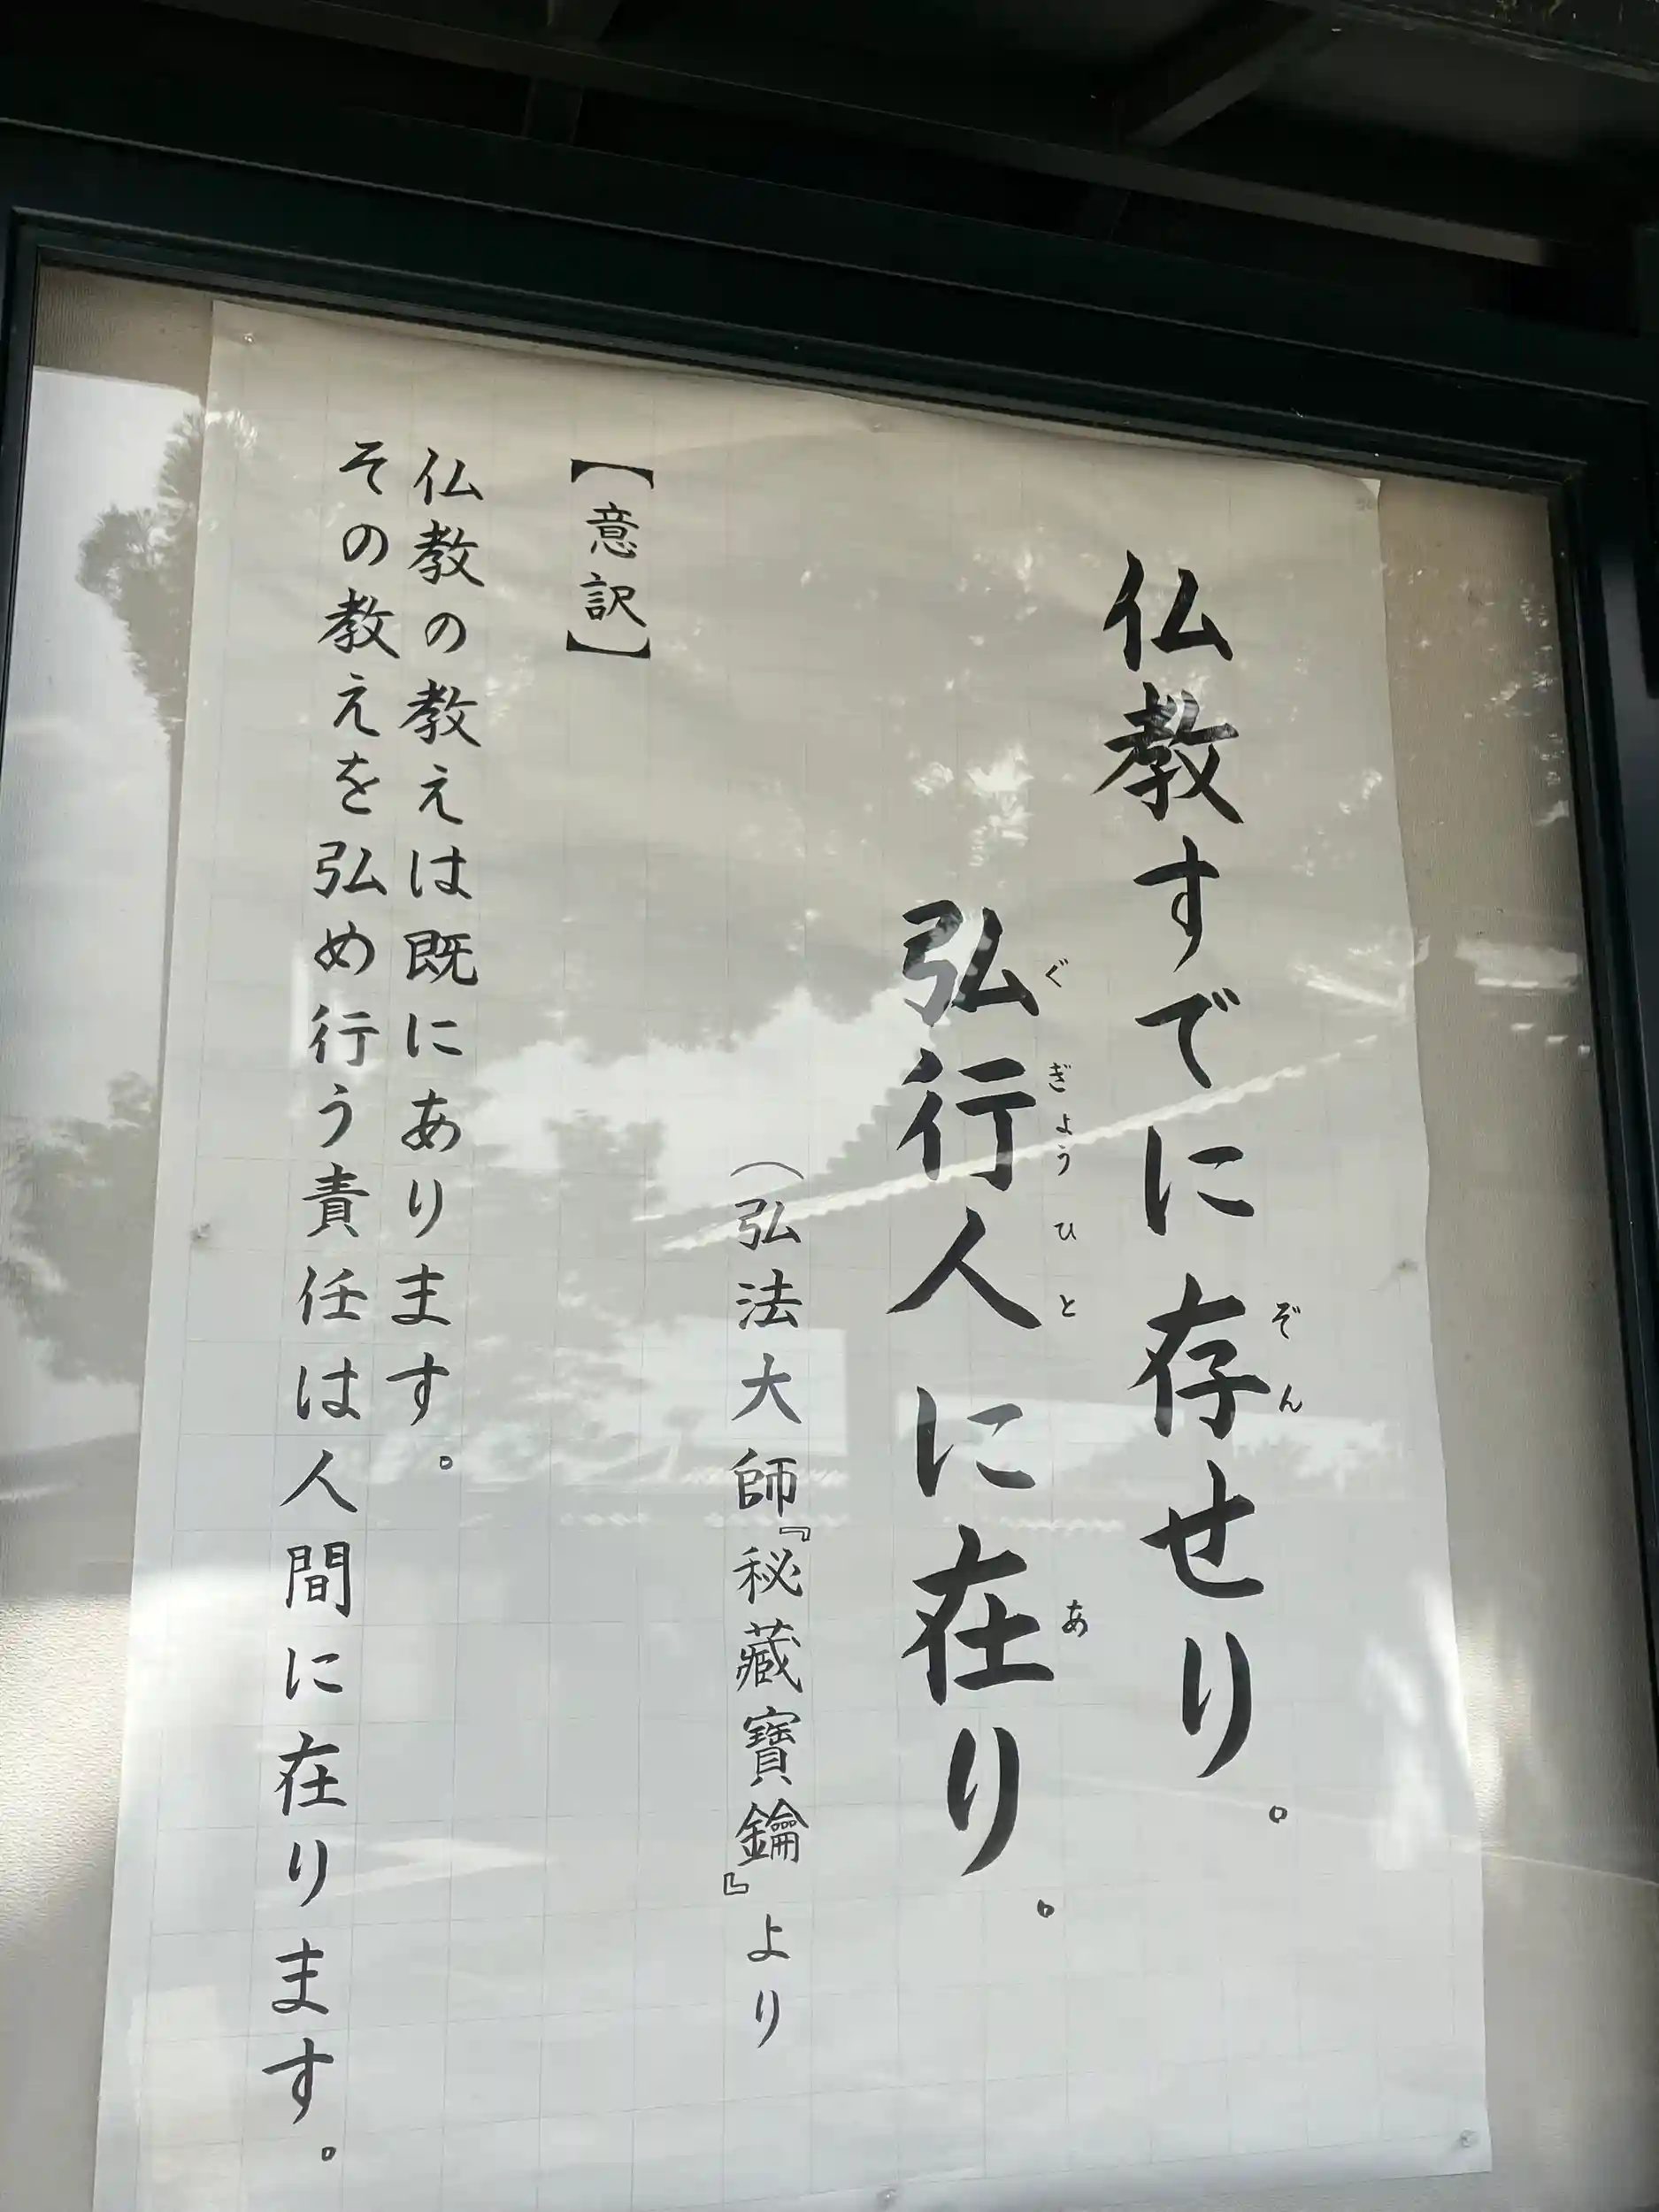 仏教すでに存せり。
ぞん
弘行人に在り。
ぐぎょうひとあ
（弘法大師『秘蔵寶鑰』より
【意訳】
仏教の教えは既にあります。
その教えを弘め行う責任は人間に在ります。